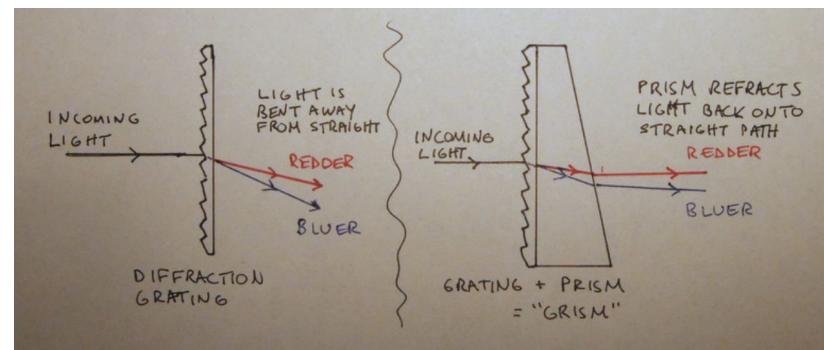 INCOMING
LIGHT
LIGHT IS
BENT AWAY
FROM STRAIGHT
REDDER
BLUER
DIFFRACTION
GRATING
INCOMING
LIGHT
PRISM REFRACTS
LIGHT BACK ONTO
STRAIGHT PATH
REDDER
BLUER
GRATING + PRISM
= "GRISM"